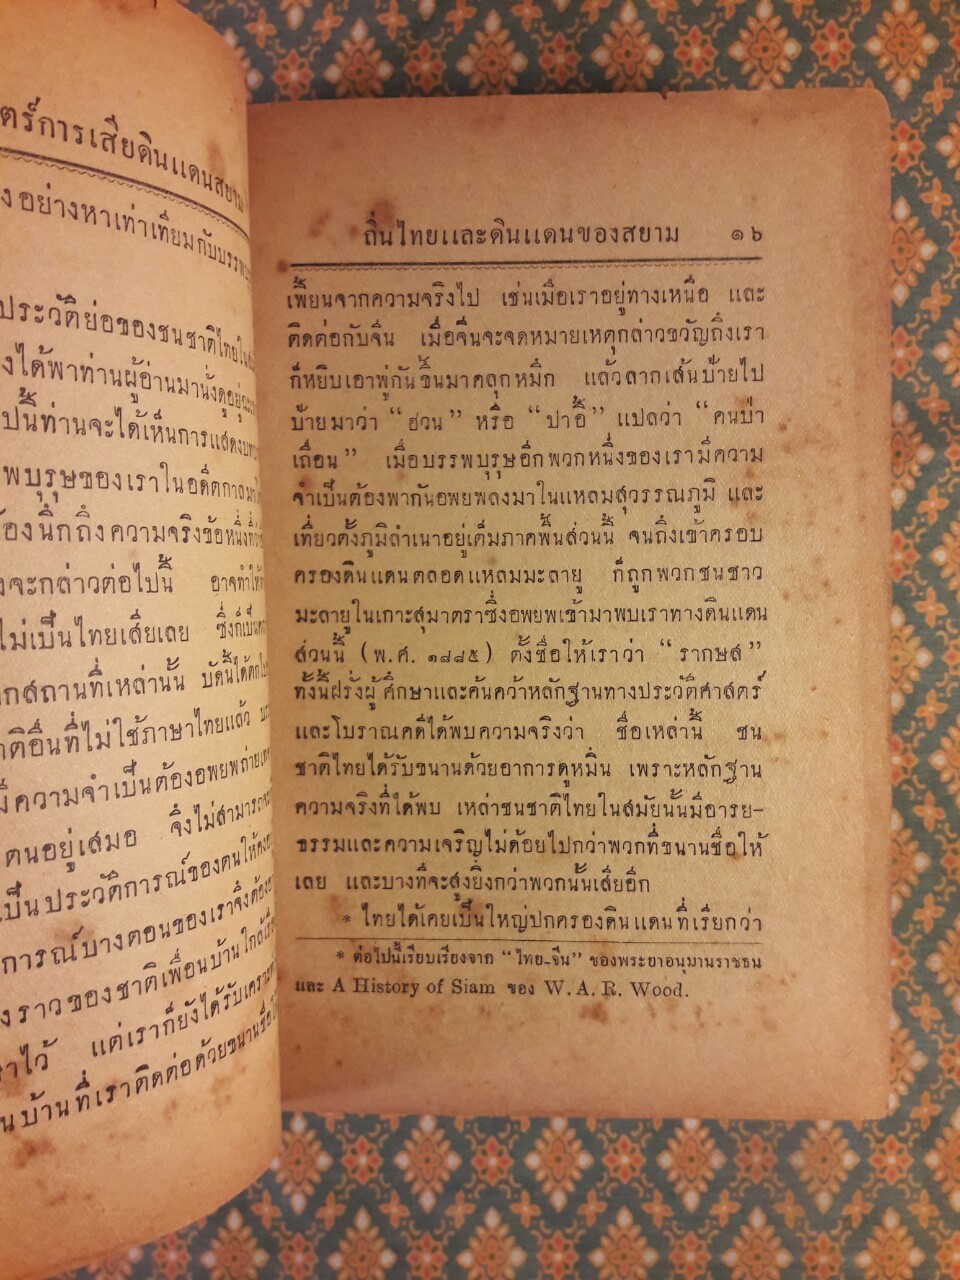 ตร์การเสียดินแดนสยาม
งอย่างหาเท่าเทียมกับบรรพ
ประวัติย่อของชนชาติไทยใน
งได้พาท่านผู้อ่านมานั่งดูอยู่
ปนี้ท่านจะได้เห็นการแสดง
พบุรุษของเราในอดีตกาล
้องนึกถึงความจริงข้อหนึ่งที่
งจะกล่าวต่อไปนี้ อาจทำให้
ไม่เป็นไทยเสียเลย ซึ่งก็เป็น
กสถานที่เหล่านั้น บัดนี้ได้
าติอื่นที่ไม่ใช้ภาษาไทยแล้ว
มีความจำเป็นต้องอพยพถ่าย
ดนอยู่เสมอ จึงไม่สามารถ
เป็นประวัติการณ์ของตนให้
การณ์บางตอนของเราจึงต้อง
งราวของชาติเพื่อนบ้านใกล้
ราไว้ แต่เราก็ยังได้รับ
นบ้านที่เราติดต่อด้วยขนานชื่อ
ถิ่นไทยและดินแดนของสยาม ๑๖
เพี้ยนจากความจริงไป เช่นเมื่อเราอยู่ทางเหนือ และ
ติดต่อกับจีน เมื่อจีนจะจดหมายเหตุกล่าวขวัญถึงเรา
ก็หยิบเอาพู่กันขึ้นมาคลุกหมึก แล้วลากเส้นป้ายไป
ป้ายมาว่า “ฮวน” หรือ “ปาอี้” แปลว่า “คนป่า
เถื่อน” เมื่อบรรพบุรุษอีกพวกหนึ่งของเรามีความ
จำเป็นต้องพากันอพยพลงมาในแหลมสุวรรณภูมิ และ
เที่ยวตั้งภูมิลำเนาอยู่เต็มภาคพื้นส่วนนี้ จนถึงเข้าครอบ
ครองดินแดนตลอดแหลมมะลายู ก็ถูกพวกชนชาว
มะลายูในเกาะสุมาตราซึ่งอพยพเข้ามาพบเราทางดินแดน
ส่วนนี้ (พ.ศ. ๑๘๘๕) ตั้งชื่อให้เราว่า “รากษส”
ทั้งนี้ฝรั่งผู้ศึกษาและค้นคว้าหลักฐานทางประวัติศาสตร์
และโบราณคดีได้พบความจริงว่า ชื่อเหล่านี้ ชน
ชาติไทยได้รับขนานด้วยอาการดูหมิ่น เพราะหลักฐาน
ความจริงที่ได้พบ เหล่าชนชาติไทยในสมัยนั้นมีอารย-
ธรรมและความเจริญไม่ด้อยไปกว่าพวกที่ขนานชื่อให้
เลย และบางทีจะสูงยิ่งกว่าพวกนั้นเสียอีก
* ไทยได้เคยเป็นใหญ่ปกครองดินแดนที่เรียกว่า
* ต่อไปนี้เรียบเรียงจาก “ไทย-จีน” ของพระยาอนุมานราชธน
และ A History of Siam ของ W. A. R. Wood.